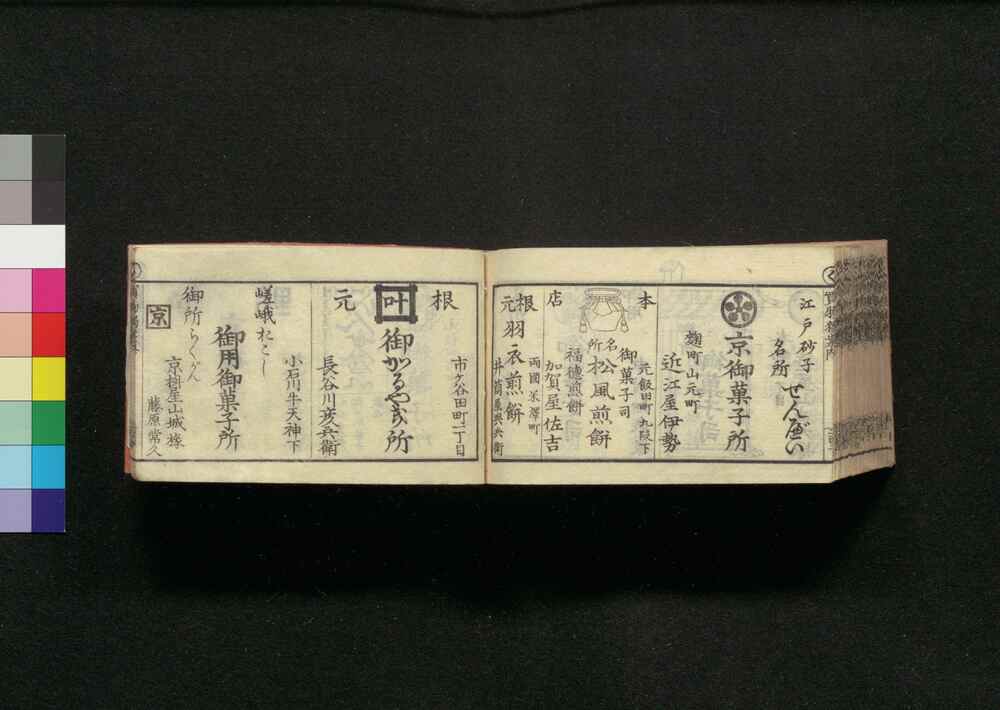 江戸砂子
名所 せんべい
京御菓子所
麹町山元町
近江屋伊勢
本
元飯田町九段下
御菓子司
名所
松風煎餅
福徳煎餅
店
加賀屋佐吉
根元
羽衣煎餅
両國米澤町
井筒屋與兵衛
根
市ケ谷田町二丁目
叶
御かるやき所
元
長谷川亥兵衛
小石川牛天神下
嵯峨おこし
御用御菓子所
御所らくがん
京
京樹星山城掾
藤原常久